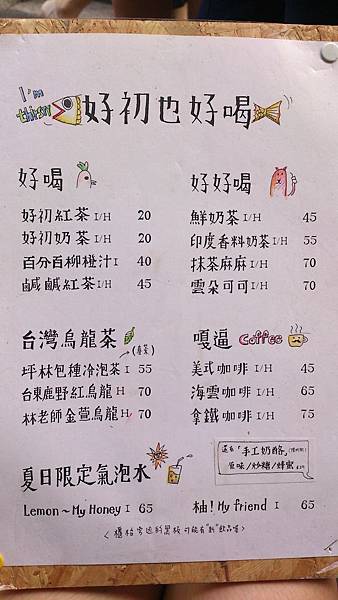 I'm thirsty
好初也好喝
好喝
好初紅茶 I/H 20
好初奶茶 I/H 20
百分百柳橙汁 I 40
鹹鹹紅茶 I/H 45
好好喝
鮮奶茶 I/H 45
印度香料奶茶 I/H 55
抹茶麻麻 I/H 70
雲朵可可 I/H 70
台灣烏龍茶
(春茶)
坪林包種冷泡茶 I 55
台東鹿野紅烏龍 H 70
林老師金萱烏龍 H 70
嘎逼 Coffee
美式咖啡 I/H 45
海雲咖啡 I/H 65
拿鐵咖啡 I/H 75
還有「手工奶酪」
原味/炒糖/蜂蜜
夏日限定氣泡水
Lemon~My Honey I 65
柚! My friend I 65